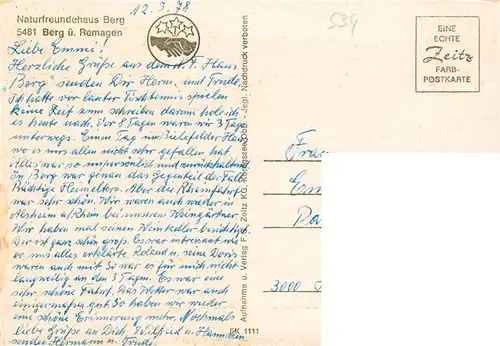 12.3.78
539
Naturfreundehaus Berg
5481 Berg ü. Remagen
EINE
ECHTE
Zeitz
FARB-
POSTKARTE
Liebe Emmi!
Herzliche Grüße aus dem N.F. Haus
"Berg" senden Dir Herm. und Trude.
Ich hatte vor lauter Tischtennis spielen
keine Zeit zum schreiben darum hole ich
es heute nach. Vor 8 Tagen waren wir 3 Tage
unterwegs. Einen Tag im Bielefelder Haus
wo es uns allen nicht sehr gefallen hat.
Alles war so unpersönlich und zurückhaltend
In Berg war genau das Gegenteil der Fall.
Prächtige Heimeltern. Aber die Rheinfahrt
war sehr schön. Wir waren auch wieder in
Alsheim a/Rhein bei unserem Weingärtner.
Wir haben mal seinen Weinkeller besichtigt.
Der ist ganz schön groß. Es war interessant wie
er uns alles erklärte. Roland u. seine Doris
waren auch mit. So war es für mich nicht
langweilig an den 3 Tagen. Es war eine
sehr schöne Fahrt. Das Wetter war auch
einigermaßen gut. So haben wir wieder
eine schöne Erinnerung mehr. Nochmals
liebe Grüße an Dich, Wilfried u. Hannchen
senden Hermann u. Trude.
Aufnahme u. Verlag F. Zeitz KG, Königssee/Obb. - Jegl. Nachdruck verboten
BK 1111
Frau
3000